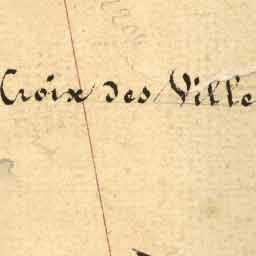 Croix des Ville